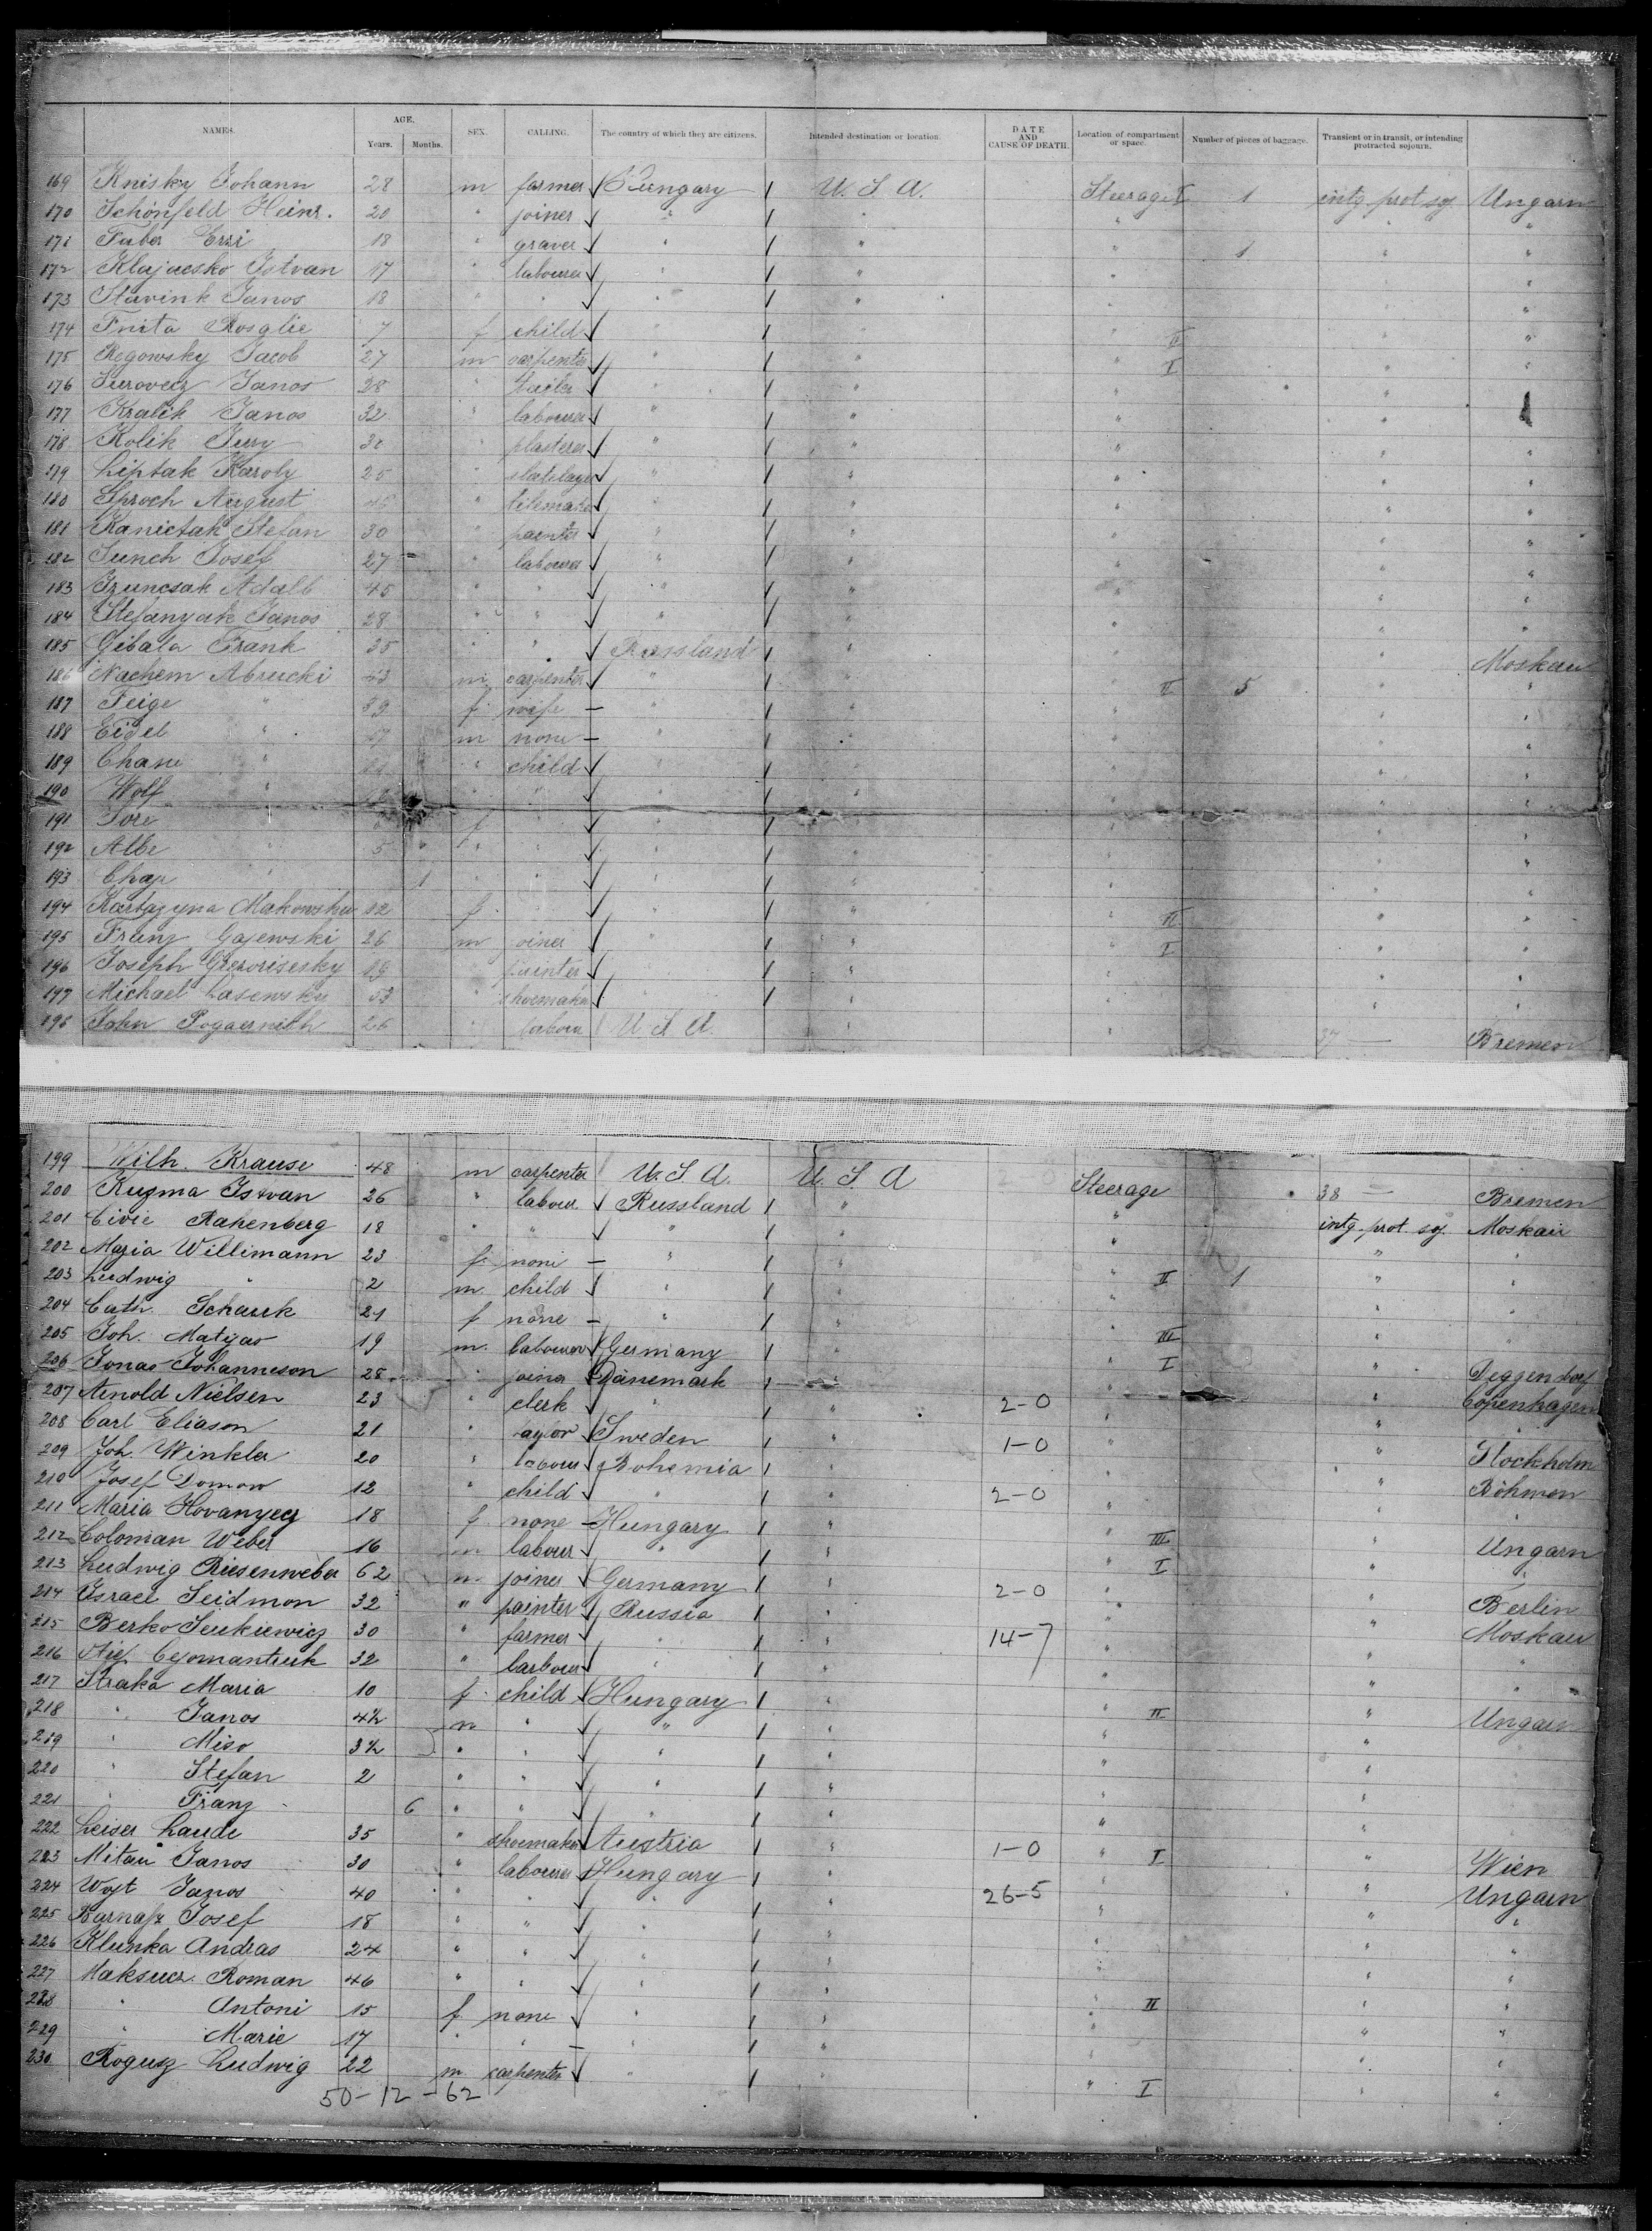 NAMES. AGE. Years. Months. SEX. CALLING. The country of which they are citizens. Intended destination or location. DATE AND CAUSE OF DEATH. Location of compartment or space. Number of pieces of baggage. Transient or in transit, or intending protracted sojourn.
169 Knisky Johann 28 m farmer Hungary U. S. A. Steerage I 1 intg. prot. soj. Ungarn
170 Schönfeld Heinr. 20 " joiner " " " " "
171 Faber Erzi 18 " graver " " " 1 " "
172 Klajacsko Istvan 17 " labourer " " " " "
173 Slavink Janos 18 " " " " " " "
174 Rosalie 7 f child " " " II " "
175 Regowsky Jacob 27 m carpenter " " " I " "
176 Janos 28 " " " " " "
177 Kralik Janos 32 " labourer " " " "
178 Kolik Jury 32 " plasterer " " " " "
179 Liptak Karoly 25 " " " " " "
180 Sproch August 45 " " " " " "
181 Kanictak Stefan 30 " painter " " " " "
182 Sunch Josef 27 " labourer " " " " "
183 Adalb 45 " " " " " " "
184 Stefanyak Janos 28 " " " " " " "
185 Gibala Frank 35 " " Russland " " " Moskau
186 Nachem Abrucki 43 m carpenter " " " II 5 " "
187 Feige " 39 f wife - " " " " "
188 Eidel " 17 m none - " " " " "
189 Chane " " child " " " " "
190 Wolf " " " " " " " "
191 Sore f " " " " " "
192 Albe " 5 " " " " " " "
193 Chaje " 1 " " " " " " "
194 Kartazyna Makowska 12 f " " " " II " "
195 Franz Gajewski 26 m oiner " " " I " "
196 Joseph 19 painter " " " " "
197 Michael Lasewsky 53 " shoemaker " " " " "
198 John Pogaernith 26 " labour U S A " " 37 — Bremen
199 Wilh. Krause 48 m carpenter U. S. A. U. S A Steerage 38 — Bremen
200 Kuzma Istvan 26 " labour Russland " " intg. prot. soj. Moskau
201 Civie Rakenberg 18 " " " " " " "
202 Maria Willimann 23 f. none - " " " II 1 " "
203 Ludwig " 2 m. child " " " " "
204 Cath. Schauk 21 f none - " " III " "
205 Joh. Matyas 19 m. labourer Germany " " I " Deggendorf
206 Jonas Johanneson 28 " joiner Dänemark " " " Copenhagen
207 Arnold Nielsen 23 " clerk " " 2-0 " " "
208 Carl Eliason 21 " taylor Sweden " 1-0 " " Stockholm
209 Joh. Winkler 20 " labour Bohemia " " " Böhmen
210 Josef Domow 12 " child " " 2-0 " " "
211 Maria Hovanyecz 18 f. none - Hungary " " III " Ungarn
212 Coloman Weber 16 m labour " " " I " "
213 Ludwig Riesenweber 62 m. joiner Germany " 2-0 " " Berlin
214 Israel Seidmon 32 " painter Russia " " " Moskau
215 Berko Senkiewicz 30 " farmer " " 14-7 " " "
216 32 " larbour " " " " "
217 Straka Maria 10 f. child Hungary " " II " Ungarn
218 " Janos 4½ m " " " " "
219 " Miso 3½ " " " " " "
220 " Stefan 2 " " " " " "
221 " Franz 6 " " " " " "
222 Leiser Laude 35 " shoemaker Austria " 1-0 " I " Wien
223 Mitau Janos 30 " labourer Hungary " " " Ungarn
224 Wojt Janos 40 " " " " 26-5 " " "
225 Josef 18 " " " " " " "
226 Klunka Andras 24 " " " " " " "
227 Roman 46 " " " " " " "
228 " Antoni 15 f. none " " " II " "
229 " Marie 17 " " " " " " "
230 Rogusz Ludwig 22 m. carpenter " " " I " "
50-12-62